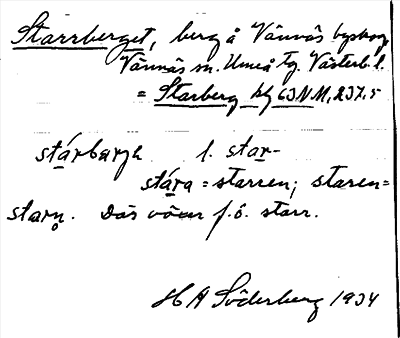 Starrberget, berg å Vännäs byskog
Vännäs sn. Umeå tg. Västerb. l.
= Starberg blg 63 N M, 237.5
stárbarzh l. star-
stára = starren; staren =
starn. Där växer f. ö. starr.
H A Söderberg 1934